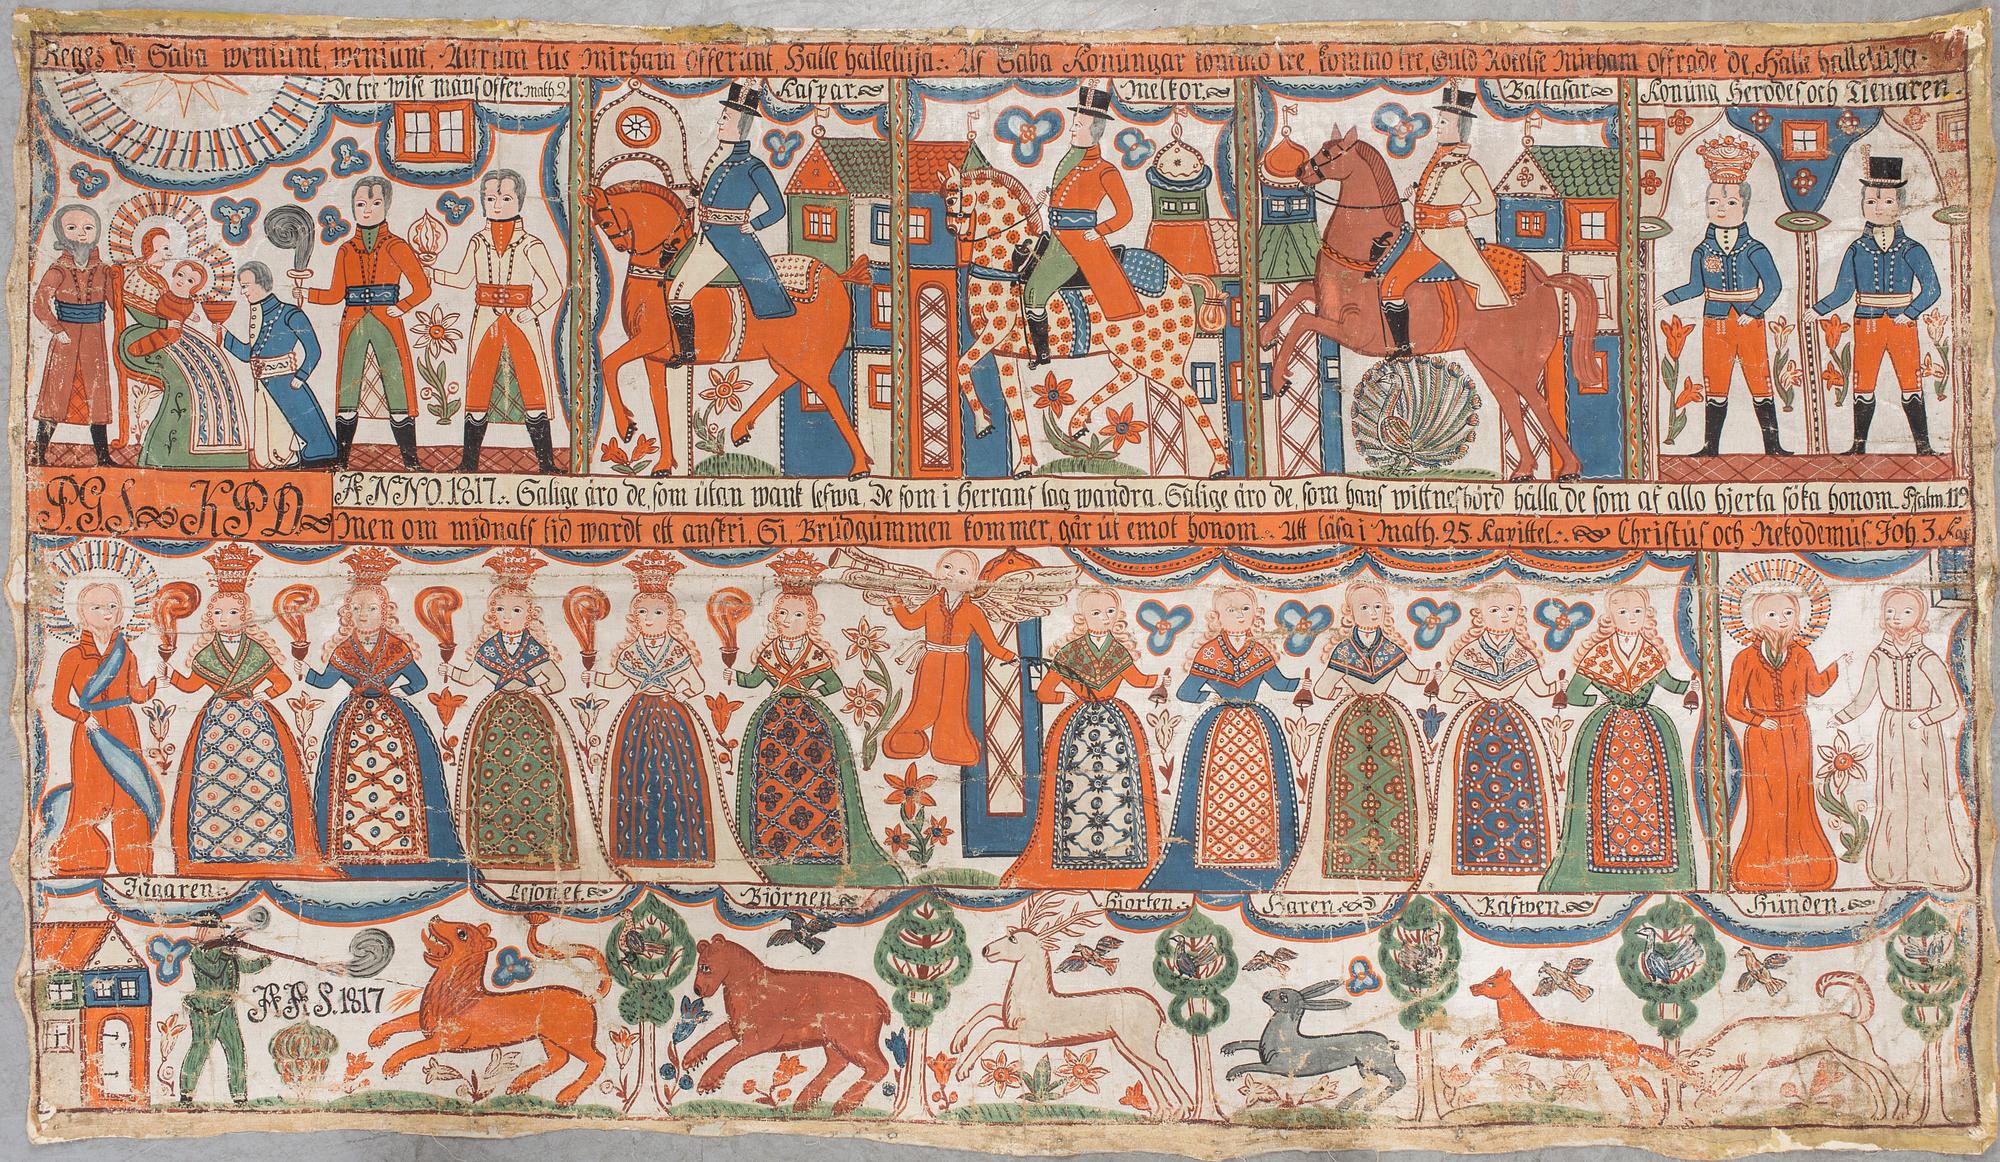 Reges de Saba weniunt, weniunt, Aurum tus Mirham Offerunt, Halle halleluja. Af Saba Konungar kommo tre, kommo tre, Guld Rökelse Mirham offrade de, Halle halleluja.
De tre wise mäns offer. math 2.
Kaspar.
Melkor.
Baltasar.
Konung Herodes och Tienaren.
P.G.S KPD
ANNO. 1817. Salige äro de, som utan wank lefwa, De som i Herrans lag wandra. Salige äro de, som hans wittnesbörd hålla, de som af allo hjerta söka honom. Psalm. 119
Men om midnats tid wardt ett anskri, Si, Brudgummen kommer, går ut emot honom. Att läsa i Math. 25. Kapittel. Christus och Nekodemus. Joh. 3. Kap
Jägaren.
Lejonet.
Björnen.
Hjorten.
Haren.
Räfwen.
Hunden.
A A S. 1817